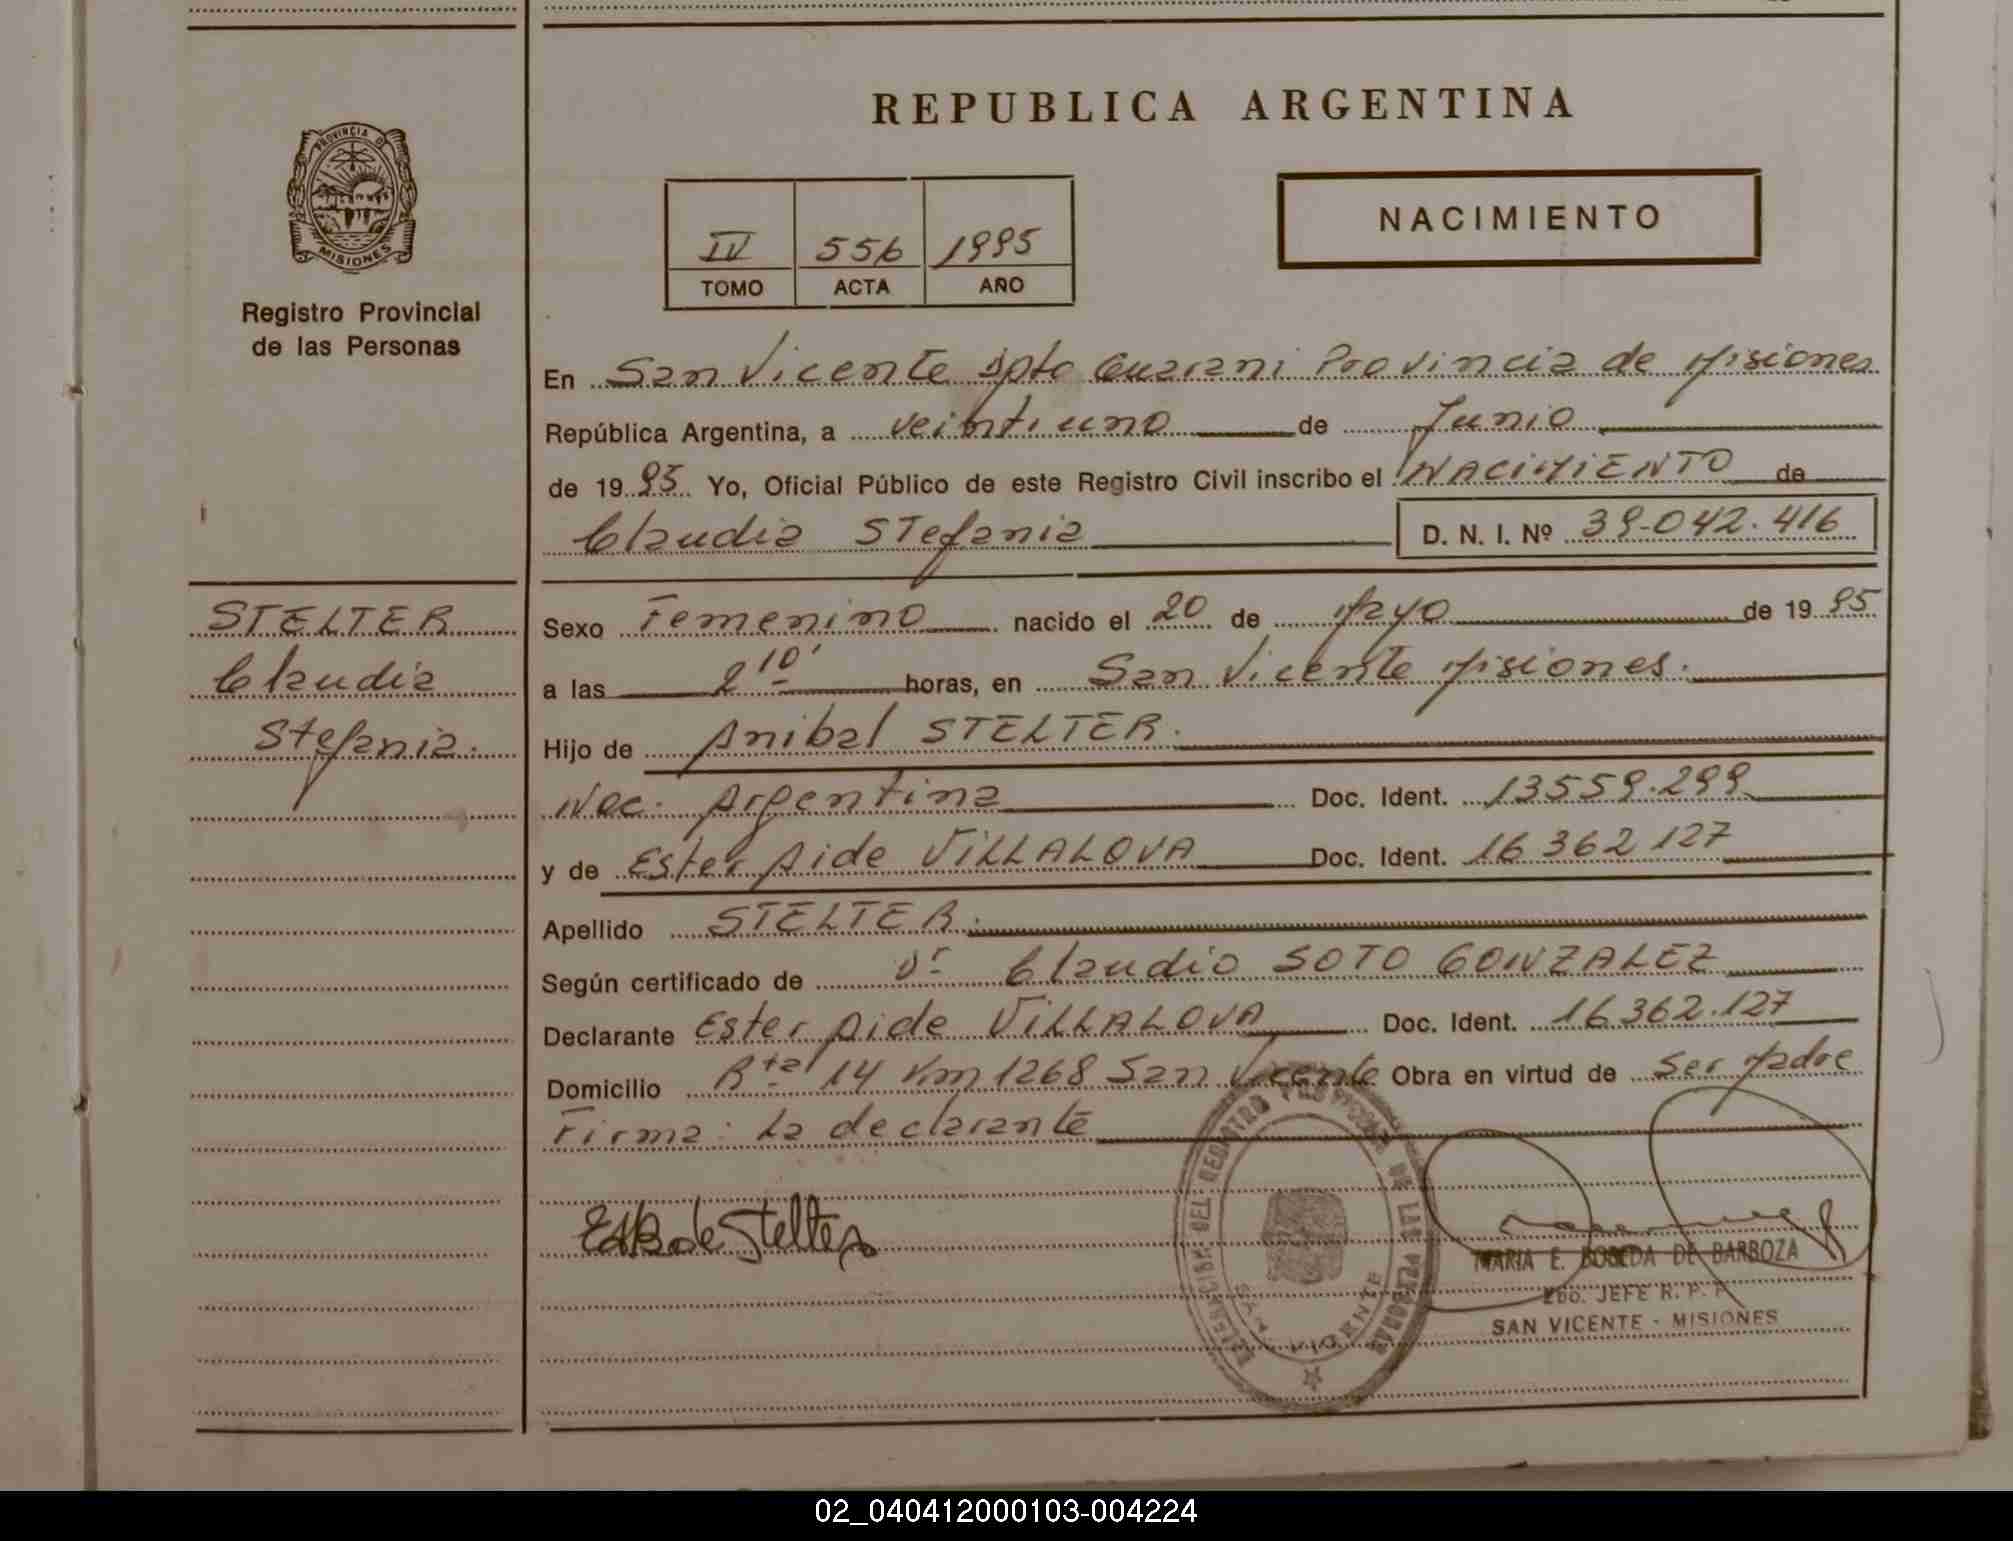 REPUBLICA ARGENTINA
PROVINCIA DE
MISIONES
Registro Provincial
de las Personas
IV 556 1995
TOMO ACTA AÑO
NACIMIENTO
En San Vicente Dpto Guarani Provincia de Misiones
República Argentina, a veintiuno de Junio
de 1995 Yo, Oficial Público de este Registro Civil inscribo el NACIMIENTO de
Claudia Stefania D. N. I. Nº 39.042.416
STELTER
Claudia
Stefania.
Sexo Femenino nacido el 20 de Mayo de 1995
a las 2 10' horas, en San Vicente Misiones.
Hijo de Anibal STELTER.
Nac. Argentina Doc. Ident. 13559.299
y de Ester Aide VILLALOVA Doc. Ident. 16 362 127
Apellido STELTER.
Según certificado de Dr Claudio SOTO GONZALEZ
Declarante Ester Aide VILLALOVA Doc. Ident. 16362.127
Domicilio Rta 14 Km 1268 San Vicente Obra en virtud de Ser Madre
Firma: La declarante
Ester de Stelter
DEL REGISTRO PROVINCIAL DE LAS PERSONAS
SAN VICENTE
MARIA E. DE BARBOZA
2do. JEFE R. P. P.
SAN VICENTE - MISIONES
02_040412000103-004224